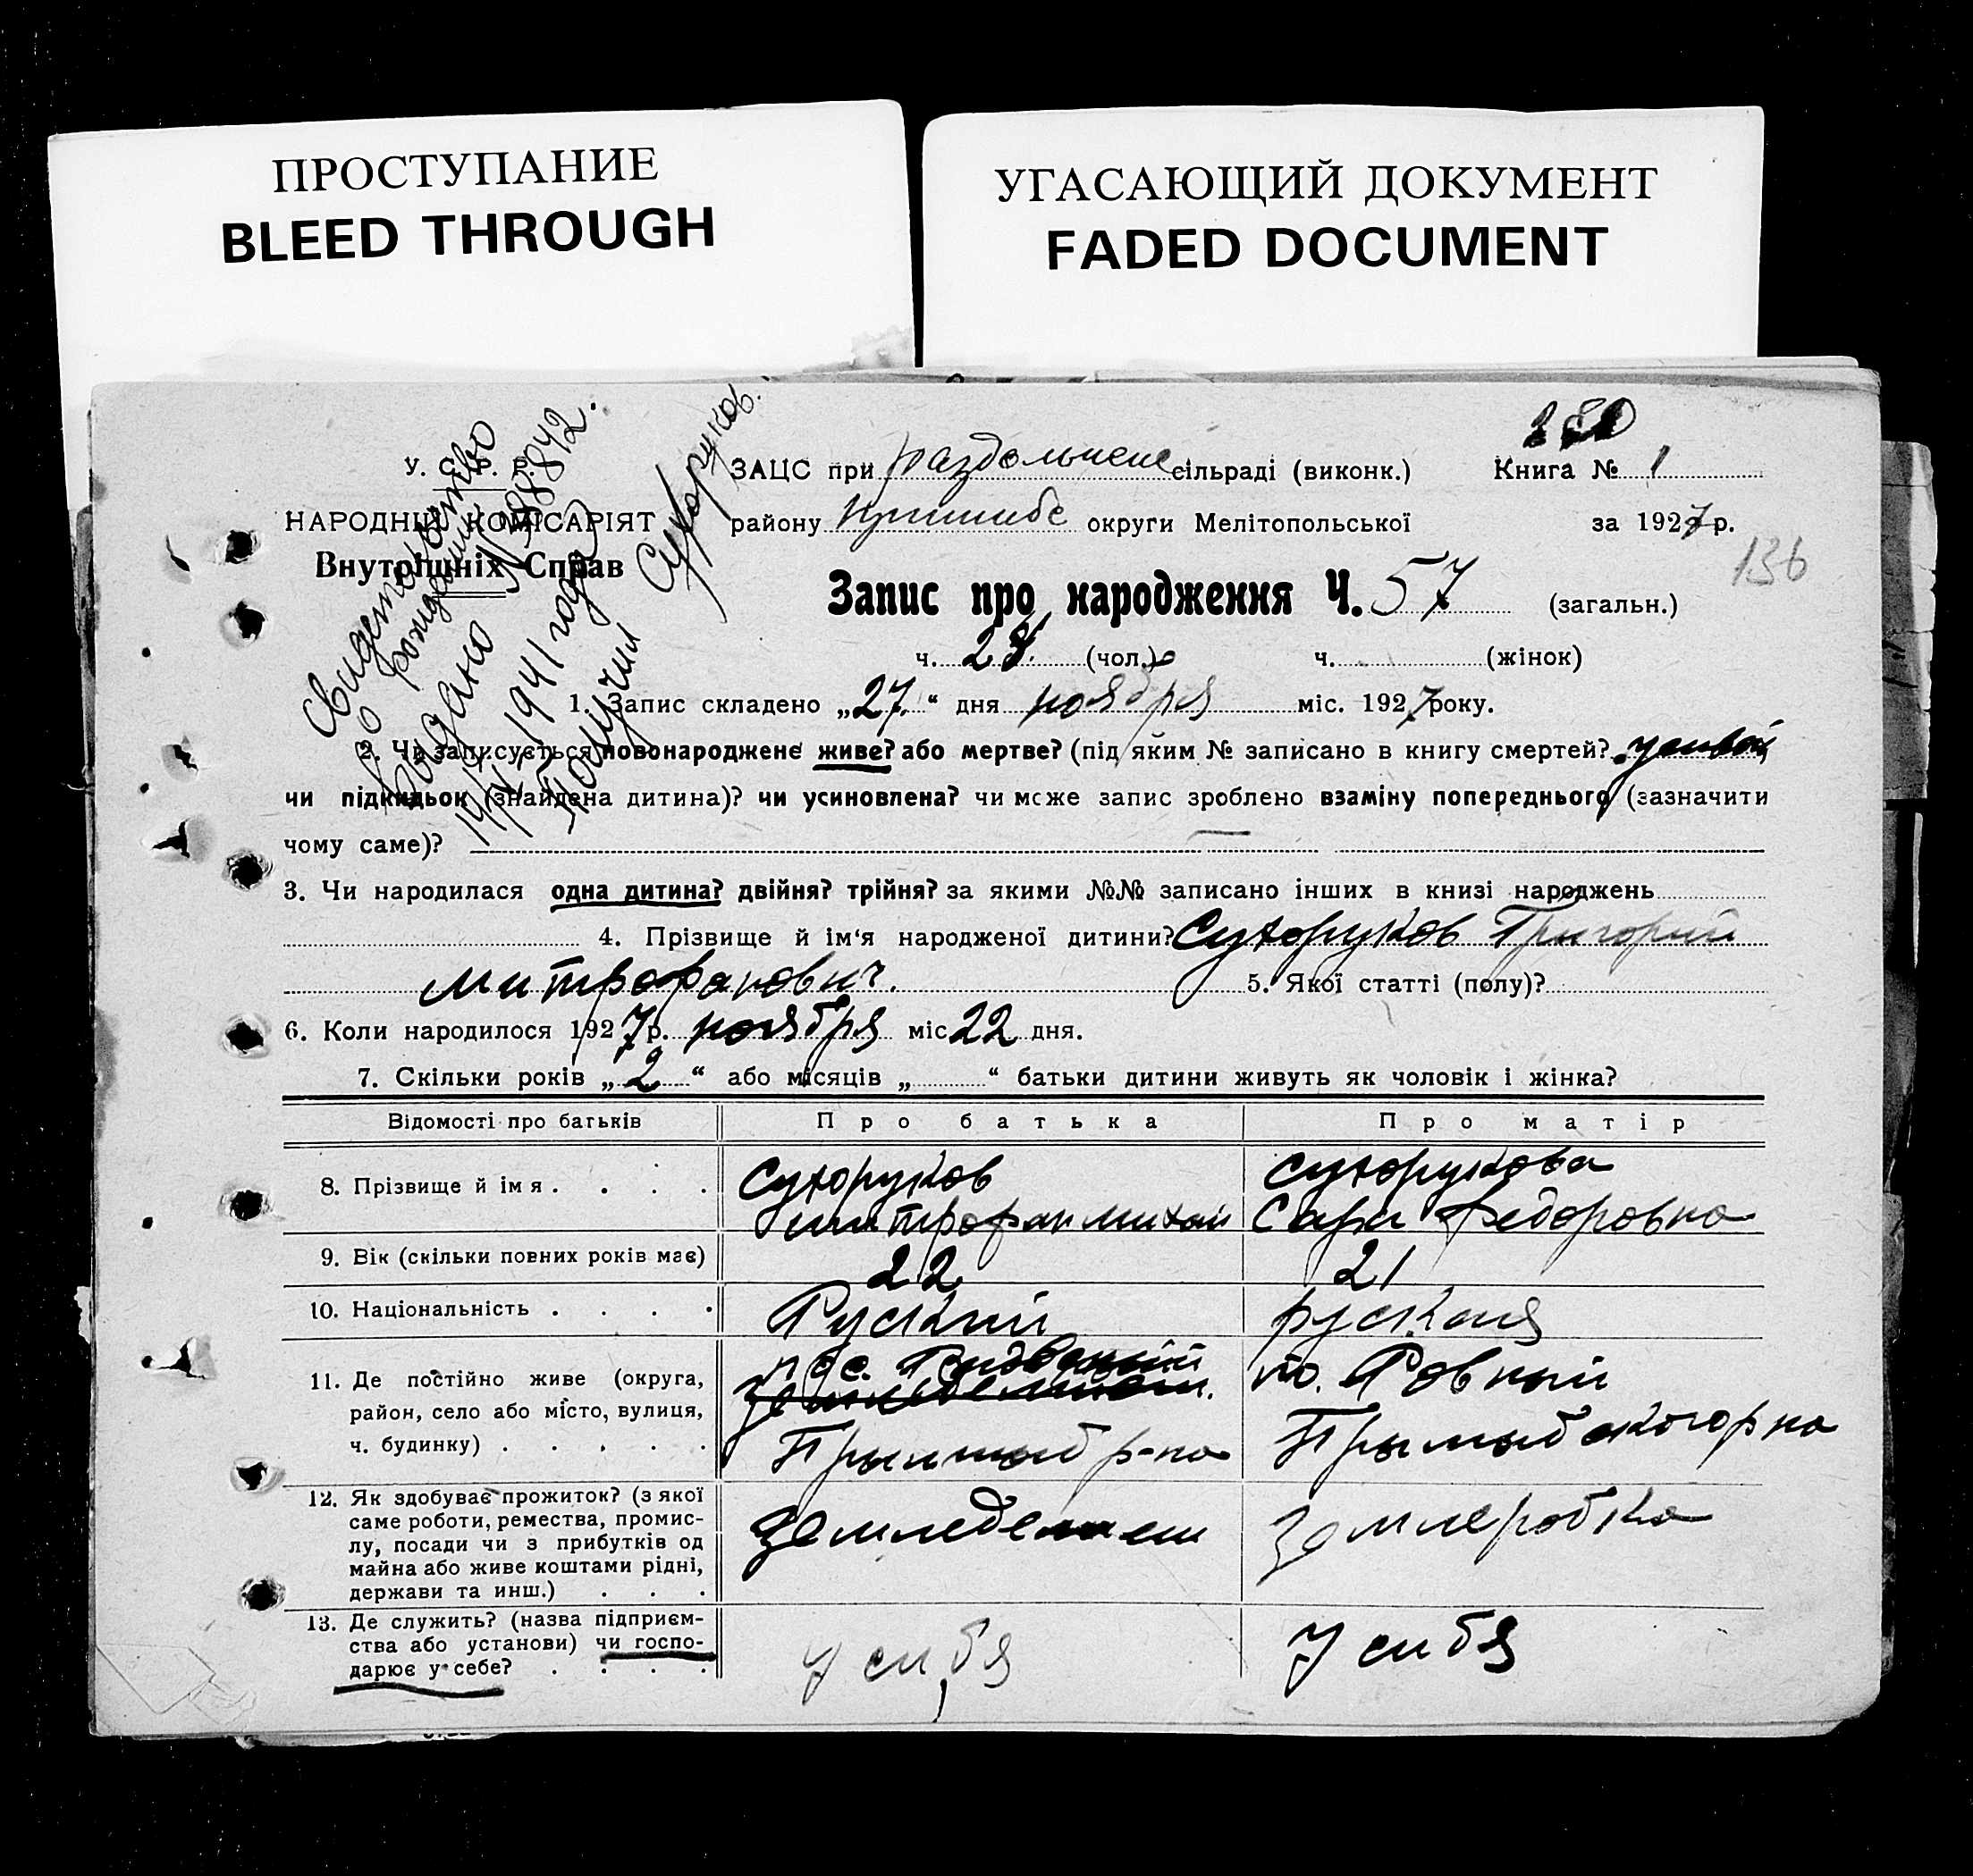 ПРОСТУПАНИЕ
BLEED THROUGH
УГАСАЮЩИЙ ДОКУМЕНТ
FADED DOCUMENT
У. С. Р. Р.
НАРОДНІЙ КОМІСАРІЯТ
Внутрішніх Справ
Свидетельство
о рождении
Выдано N 988842.
1941 года
Получил Сухоруков.
ЗАЦС при раздольнене сільраді (виконк.) Книга № 1
району Пришибс округи Мелітопольської за 1927 р.
136
Запис про народження Ч. 57 (загальн.)
ч. 28 (чол.) ч. (жінок)
1. Запис складено „27“ дня ноября міс. 1927 року.
2. Чи записується новонароджене живе? або мертве? (під яким № записано в книгу смертей?
чи підкидьок (знайдена дитина)? чи усиновлена? чи може запис зроблено взаміну попереднього (зазначити
чому саме)?
3. Чи народилася одна дитина? двійня? трійня? за якими №№ записано інших в книзі народжень
4. Прізвище й ім‘я народженої дитини? Сухоруков Григорий
Митрофанович. 5. Якої статті (полу)?
6. Коли народилося 1927 р. ноября міс 22 дня.
7. Скільки років „2“ або місяців „ “ батьки дитини живуть як чоловік і жінка?
Відомості про батьків Про батька Про матір
8. Прізвище й імя Сухоруков Сухорукова
митрофан михаи Сара Федоровна
9. Вік (скільки повних років має) 22 21
10. Національність Руский руская
11. Де постійно живе (округа, район, село або місто, вулиця, ч. будинку)
по. Ровный
Прышыб р-на Прышыбскогорна
12. Як здобуває прожиток? (з якої
саме роботи, ремества, промис-
лу, посади чи з прибутків од
майна або живе коштами рідні,
держави та инш.)
земледелеш землеробка
13. Де служить? (назва підприєм-
ства або установи) чи госпо-
дарює у себе?
у сибя у сибя